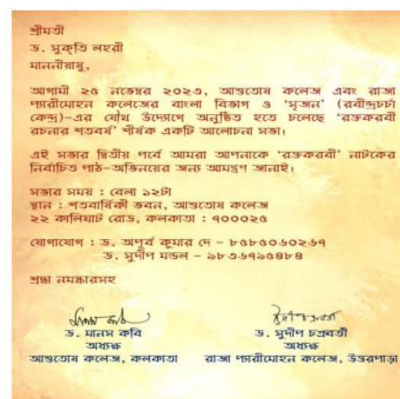 শ্রীমতী
ড. সুকৃতি লহরী
মাননীয়াষু,
আগামী ২৫ নভেম্বর ২০২৩, আশুতোষ কলেজ এবং রাজা
প্যারীমোহন কলেজের বাংলা বিভাগ ও ‘সৃজন’ (রবীন্দ্রচর্চা
কেন্দ্র)-এর যৌথ উদ্যোগে অনুষ্ঠিত হতে চলেছে ‘রক্তকরবী
রচনার শতবর্ষ’ শীর্ষক একটি আলোচনা সভা।
এই সভার দ্বিতীয় পর্বে আমরা আপনাকে ‘রক্তকরবী’ নাটকের
নির্বাচিত পাঠ-অভিনয়ের জন্য আমন্ত্রণ জানাই।
সভার সময় : বেলা ১২টা
স্থান : শতবার্ষিকী ভবন, আশুতোষ কলেজ
২২ কালিঘাট রোড, কলকাতা : ৭০০০২৫
যোগাযোগ : ড. অপূর্ব কুমার দে - ৮৫৮৫০৬০২৬৭
ড. সুদীপ মন্ডল - ৯৮৩৬৭৯৫৪৮৪
শ্রদ্ধা নমস্কারসহ
ড. মানস কবি
ড. সুদীপ চক্রবর্তী
অধ্যক্ষ
অধ্যক্ষ
আশুতোষ কলেজ, কলকাতা
রাজা প্যারীমোহন কলেজ, উত্তরপাড়া